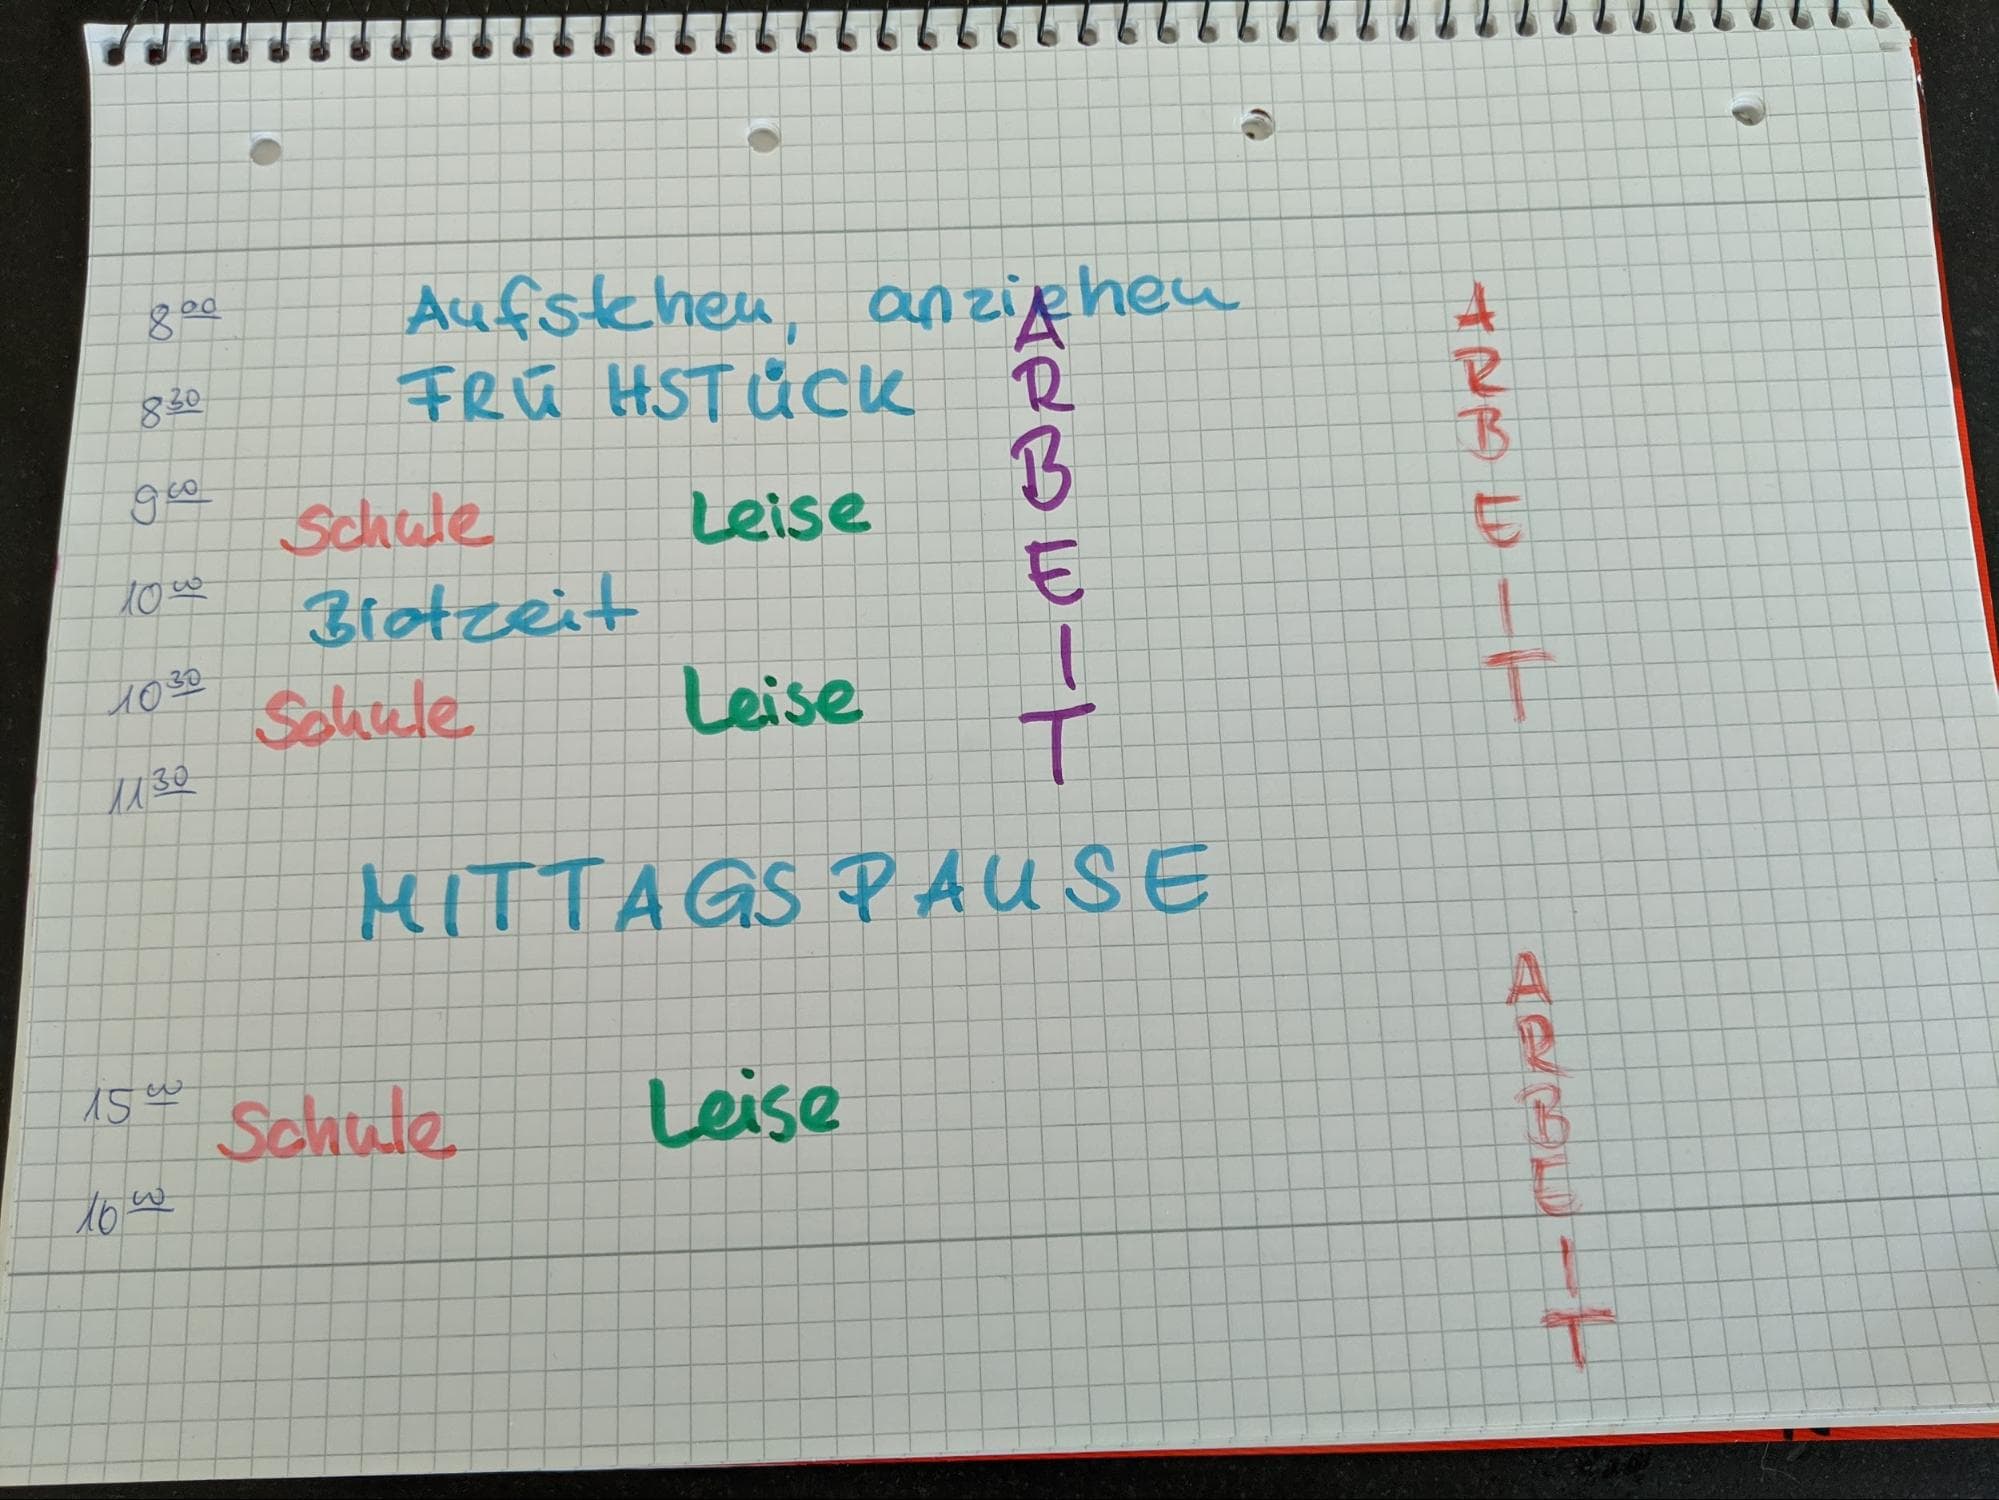 8 00 Aufstehen, anziehen
8 30 FRÜHSTÜCK
9 00 Schule Leise
10 00 Brotzeit
10 30 Schule Leise
11 30
ARBEIT
ARBEIT
MITTAGSPAUSE
15 00 Schule Leise
16 00
ARBEIT